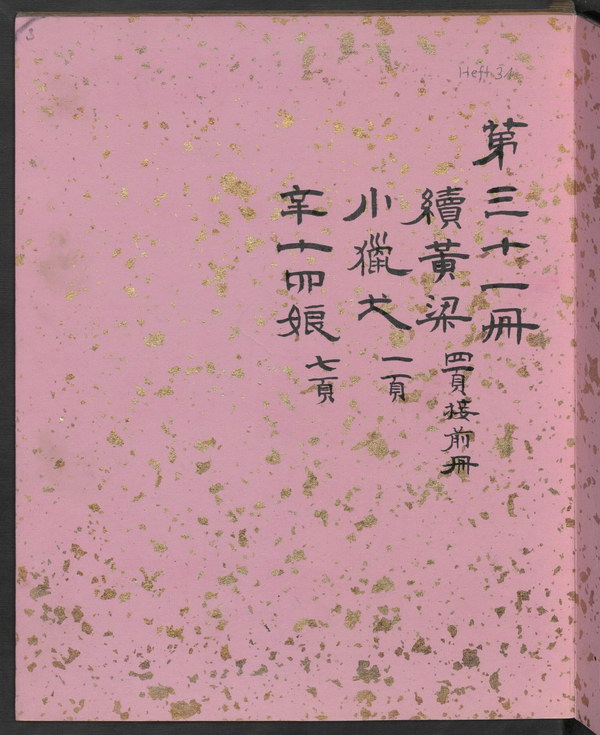 Heft 31.
第三十一冊
續黃梁 四頁接前冊
小獵犬 一頁
辛十四娘 七頁